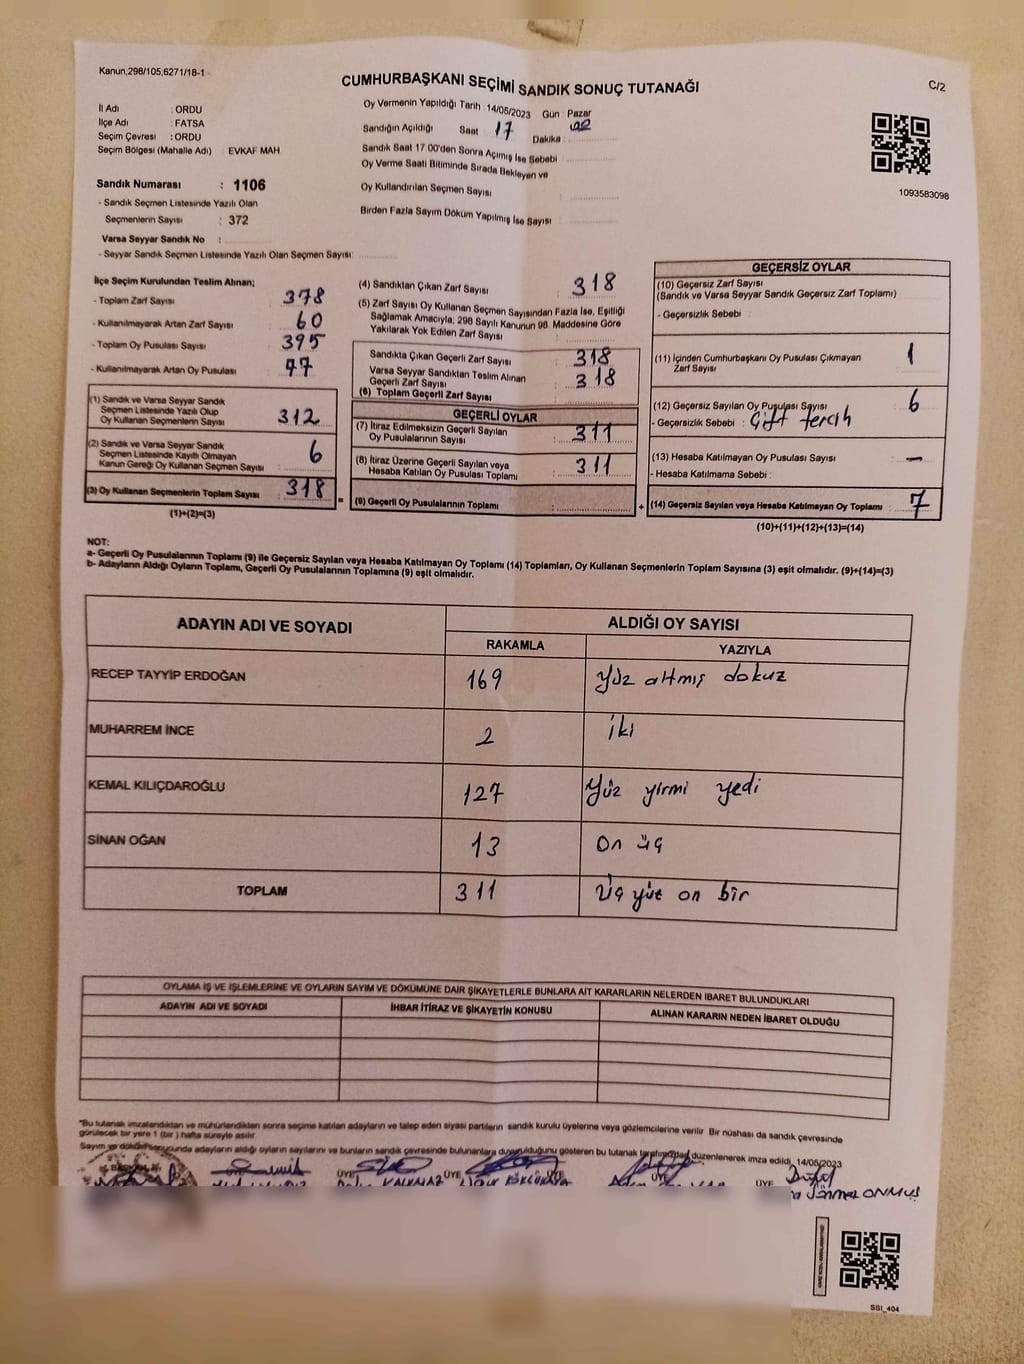 Kanun,298/105,6271/18-1
CUMHURBAŞKANI SEÇİMİ SANDIK SONUÇ TUTANAĞI
C/2
İl Adı : ORDU
İlçe Adı : FATSA
Seçim Çevresi : ORDU
Seçim Bölgesi (Mahalle Adı) : EVKAF MAH
Oy Vermenin Yapıldığı Tarih : 14/05/2023 Gün : Pazar
Sandığın Açıldığı Saat 17 Dakika : 02
Sandık Saat 17.00'den Sonra Açımış İse Sebebi
Oy Verme Saati Bitiminde Sırada Bekleyen ve
Oy Kullandırılan Seçmen Sayısı
Birden Fazla Sayım Döküm Yapılmış İse Sayısı
1093583098
Sandık Numarası : 1106
- Sandık Seçmen Listesinde Yazılı Olan
Seçmenlerin Sayısı : 372
Varsa Seyyar Sandık No :
- Seyyar Sandık Seçmen Listesinde Yazılı Olan Seçmen Sayısı:
İlçe Seçim Kurulundan Teslim Alınan;
- Toplam Zarf Sayısı 378
- Kullanılmayarak Artan Zarf Sayısı 60
- Toplam Oy Pusulası Sayısı 395
- Kullanılmayarak Artan Oy Pusulası 77
(1) Sandık ve Varsa Seyyar Sandık
Seçmen Listesinde Yazılı Olup
Oy Kullanan Seçmenlerin Sayısı 312
(2) Sandık ve Varsa Seyyar Sandık
Seçmen Listesinde Kayıtlı Olmayan
Kanun Gereği Oy Kullanan Seçmen Sayısı 6
(3) Oy Kullanan Seçmenlerin Toplam Sayısı 318
(1)+(2)=(3)
(4) Sandıktan Çıkan Zarf Sayısı 318
(5) Zarf Sayısı Oy Kullanan Seçmen Sayısından Fazla İse, Eşitliği
Sağlamak Amacıyla, 298 Sayılı Kanunun 98. Maddesine Göre
Yakılarak Yok Edilen Zarf Sayısı
Sandıkta Çıkan Geçerli Zarf Sayısı 318
Varsa Seyyar Sandıktan Teslim Alınan
Geçerli Zarf Sayısı 318
(6) Toplam Geçerli Zarf Sayısı
GEÇERLİ OYLAR
(7) İtiraz Edilmeksizin Geçerli Sayılan
Oy Pusulalarının Sayısı 311
(8) İtiraz Üzerine Geçerli Sayılan veya
Hesaba Katılan Oy Pusulası Toplamı 311
= (9) Geçerli Oy Pusulalarının Toplamı
GEÇERSİZ OYLAR
(10) Geçersiz Zarf Sayısı
(Sandık ve Varsa Seyyar Sandık Geçersiz Zarf Toplamı)
- Geçersizlik Sebebi :
(11) İçinden Cumhurbaşkanı Oy Pusulası Çıkmayan
Zarf Sayısı 1
(12) Geçersiz Sayılan Oy Pusulası Sayısı 6
- Geçersizlik Sebebi : Çift tercih
(13) Hesaba Katılmayan Oy Pusulası Sayısı –
- Hesaba Katılmama Sebebi :
+ (14) Geçersiz Sayılan veya Hesaba Katılmayan Oy Toplamı 7
(10)+(11)+(12)+(13)=(14)
NOT:
a- Geçerli Oy Pusulalarının Toplamı (9) ile Geçersiz Sayılan veya Hesaba Katılmayan Oy Toplamı (14) Toplamları, Oy Kullanan Seçmenlerin Toplam Sayısına (3) eşit olmalıdır. (9)+(14)=(3)
b- Adayların Aldığı Oyların Toplamı, Geçerli Oy Pusulalarının Toplamına (9) eşit olmalıdır.
ADAYIN ADI VE SOYADI
ALDIĞI OY SAYISI
RAKAMLA YAZIYLA
RECEP TAYYİP ERDOĞAN 169 Yüz altmış dokuz
MUHARREM İNCE 2 iki
KEMAL KILIÇDAROĞLU 127 Yüz yirmi yedi
SİNAN OĞAN 13 On üç
TOPLAM 311 Üç yüz on bir
OYLAMA İŞ VE İŞLEMLERİNE VE OYLARIN SAYIM VE DÖKÜMÜNE DAİR ŞİKAYETLERLE BUNLARA AİT KARARLARIN NELERDEN İBARET BULUNDUKLARI
ADAYIN ADI VE SOYADI İHBAR İTİRAZ VE ŞİKAYETİN KONUSU ALINAN KARARIN NEDEN İBARET OLDUĞU
*Bu tutanak imzalandıktan ve mühürlendikten sonra seçime katılan adayların ve talep eden siyasi partilerin sandık kurulu üyelerine veya gözlemcilerine verilir. Bir nüshası da sandık çevresinde
görülecek bir yere 1 (bir ) hafta süreyle asılır.
Sayım ve döküm sonucunda adayların aldığı oyların sayılarını ve bunların sandık çevresinde bulunanlara duyurulduğunu gösteren bu tutanak tarafımızdan düzenlenerek imza edildi. 14/05/2023
ÜYE ÜYE ÜYE ÜYE ÜYE
SSI_404